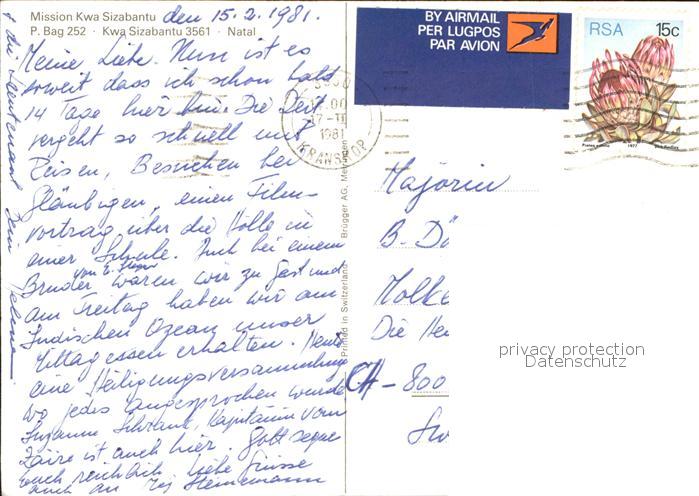 Mission Kwa Sizabantu den 15.2.1981.
P. Bag 252 · Kwa Sizabantu 3561 · Natal
Meine Liebe. Nun ist es
soweit dass ich schon bald
14 Tage hier bin. Die Zeit
vergeht so schnell mit
Reisen, Besuchen bei
Gläubigen, einen Film-
vortrag über die Hölle in
einer Schule. Auch bei einem
Bruder von waren wir zu Gast und
am Freitag haben wir am
Indischen Ozean unser
Mittagessen erhalten. Heute
eine Heiligungsversammlung
wo jedes angesprochen wurde
Suzanne Schwank, Kapitänin vom
Zaire ist auch hier. Gott segne
euch reichlich. Liebe Grüsse
auch an
Printed in Switzerland Brügger AG, Meiringen
BY AIRMAIL
PER LUGPOS
PAR AVION
RSA 15c
1977
17-II
1981
KRANSKOP
Majorin
B. Dö
Molke
Die He
CH - 800
Sw
privacy protection
Datenschutz